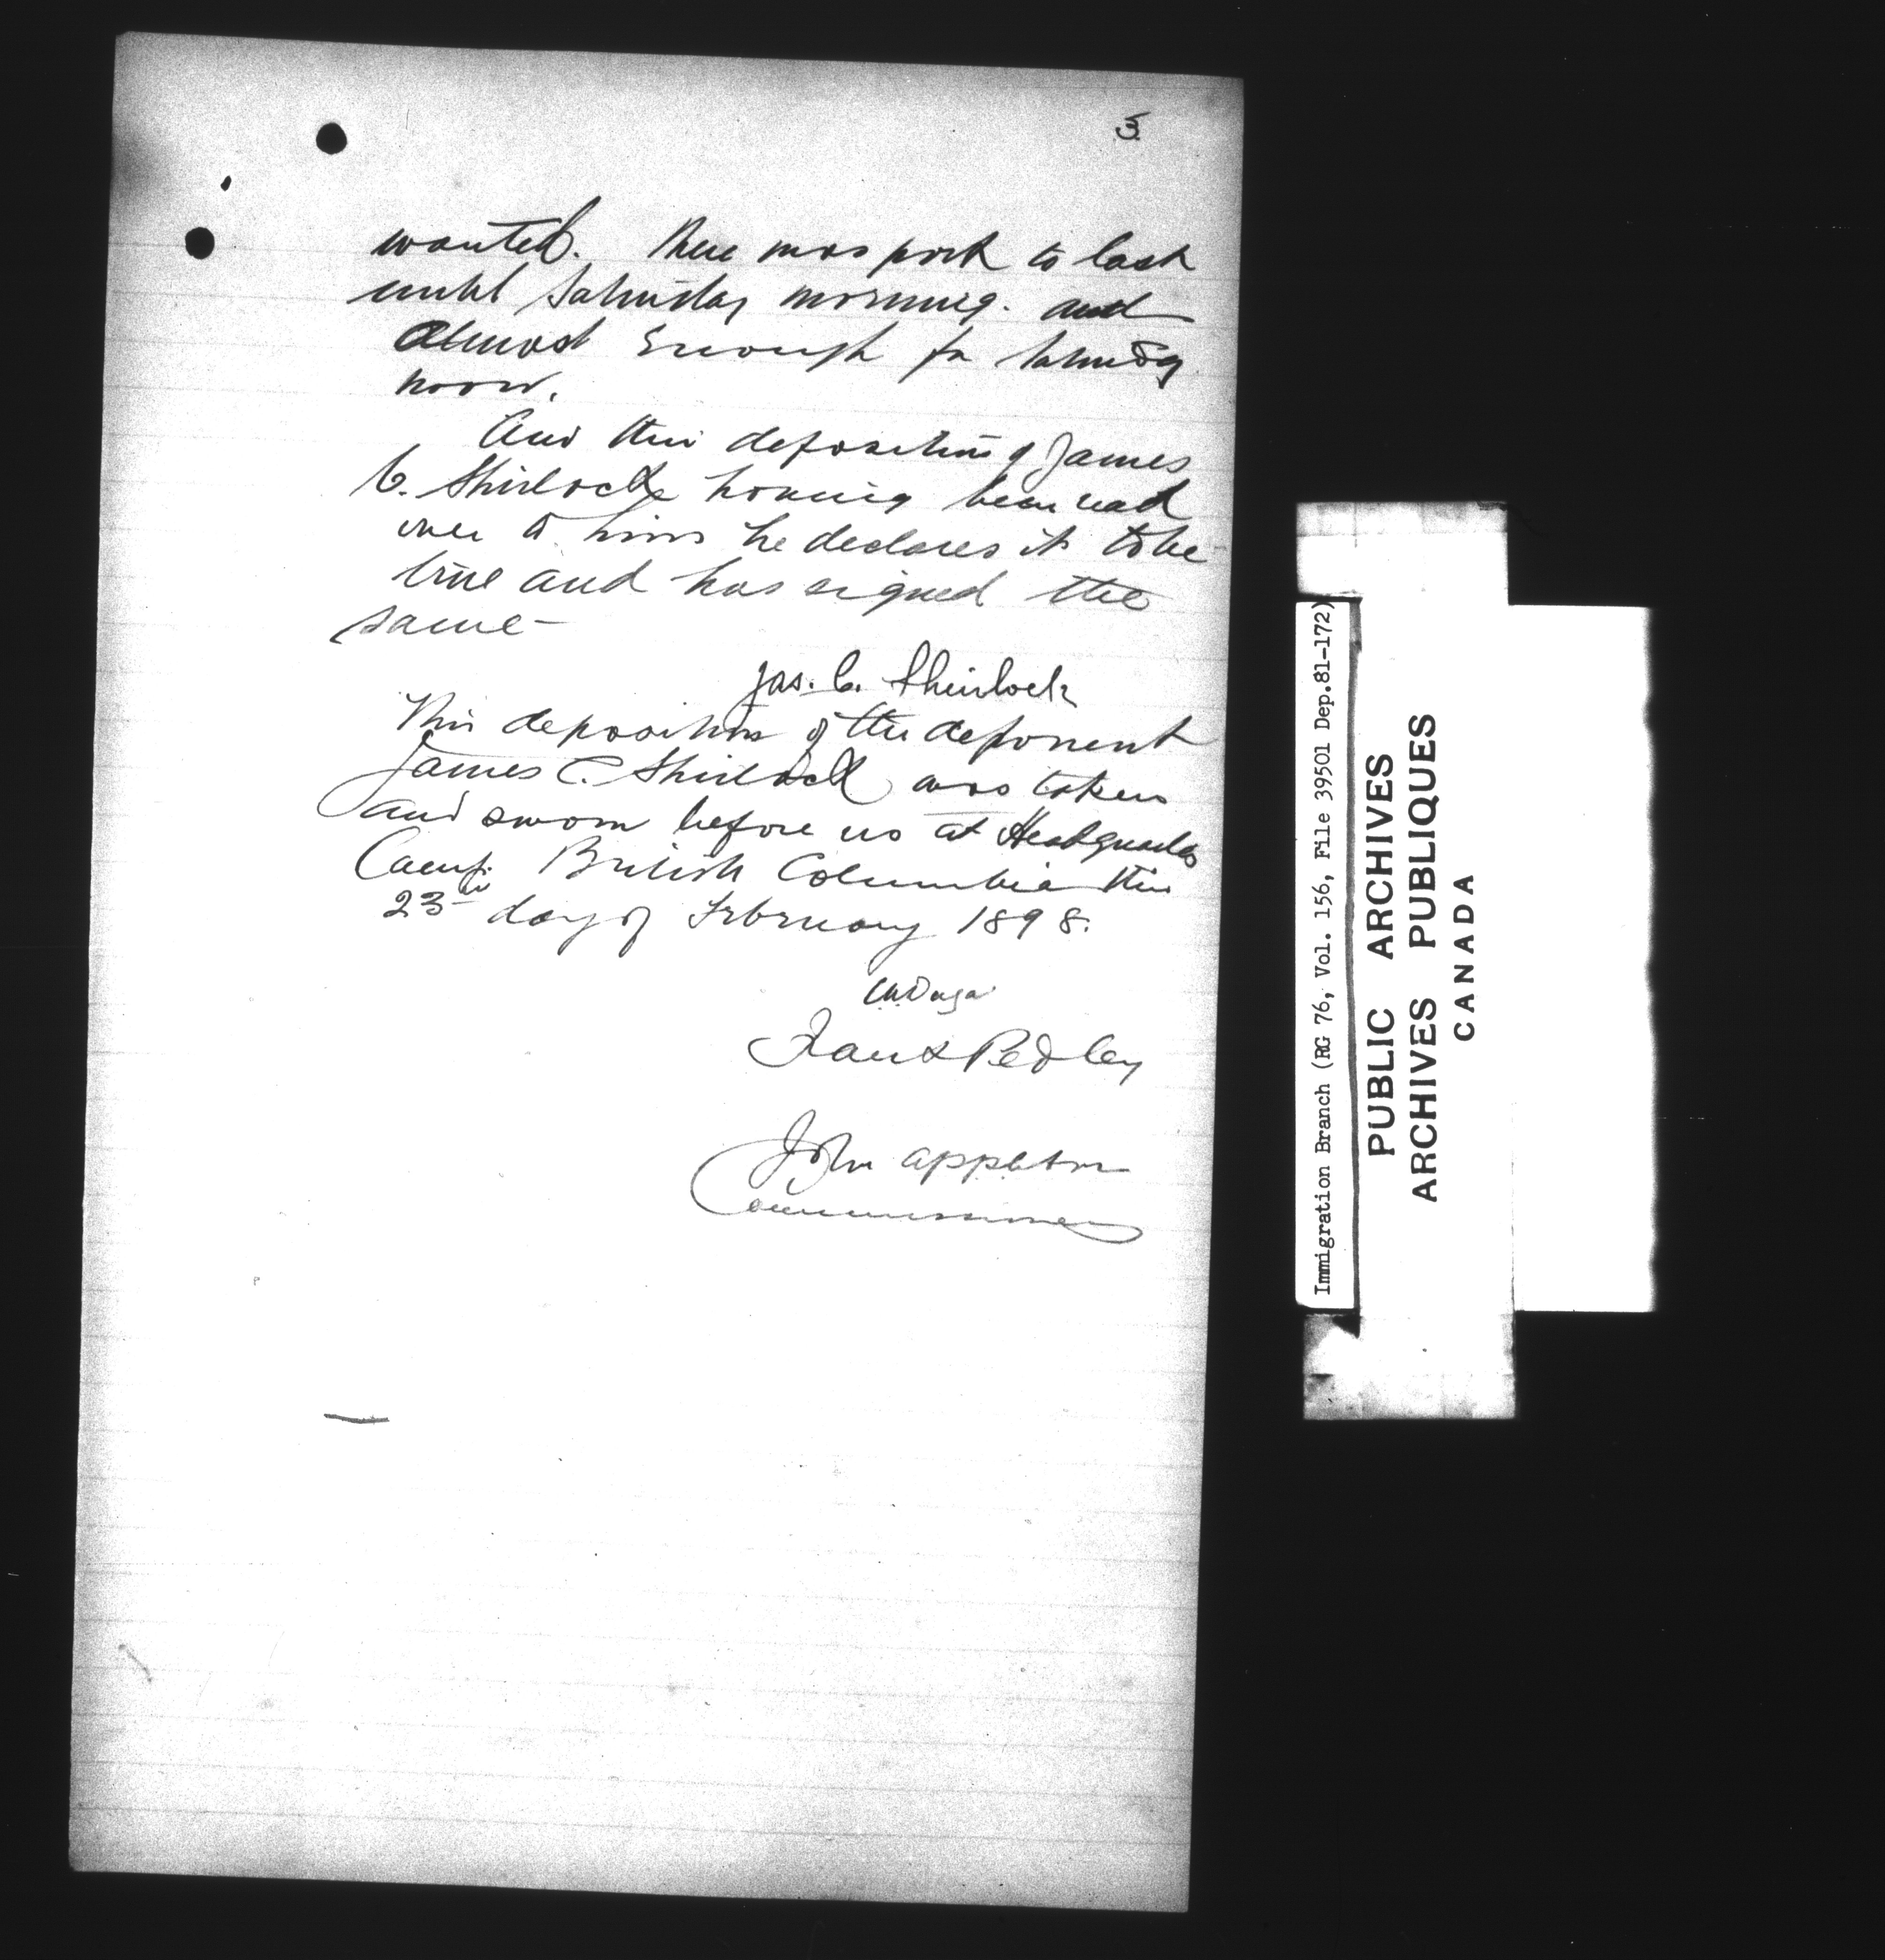 5.
wanted. There was pork to last
until Saturday morning. and
almost enough for Saturday
noon.
And this deposition of James
C. Shirlock having been read
over to him he declares it to be
true and has signed the
same -
Jas. C. Shirlock
This deposition of the deponent
James C. Shirlock was taken
and sworn before us at Headquarters
Camp. British Columbia this
23rd day of February 1898.
Frank Pedley
John Appleton
Commissioners
Immigration Branch (RG 76, Vol. 156, File 39501 Dep.81-172)
PUBLIC ARCHIVES
ARCHIVES PUBLIQUES
CANADA